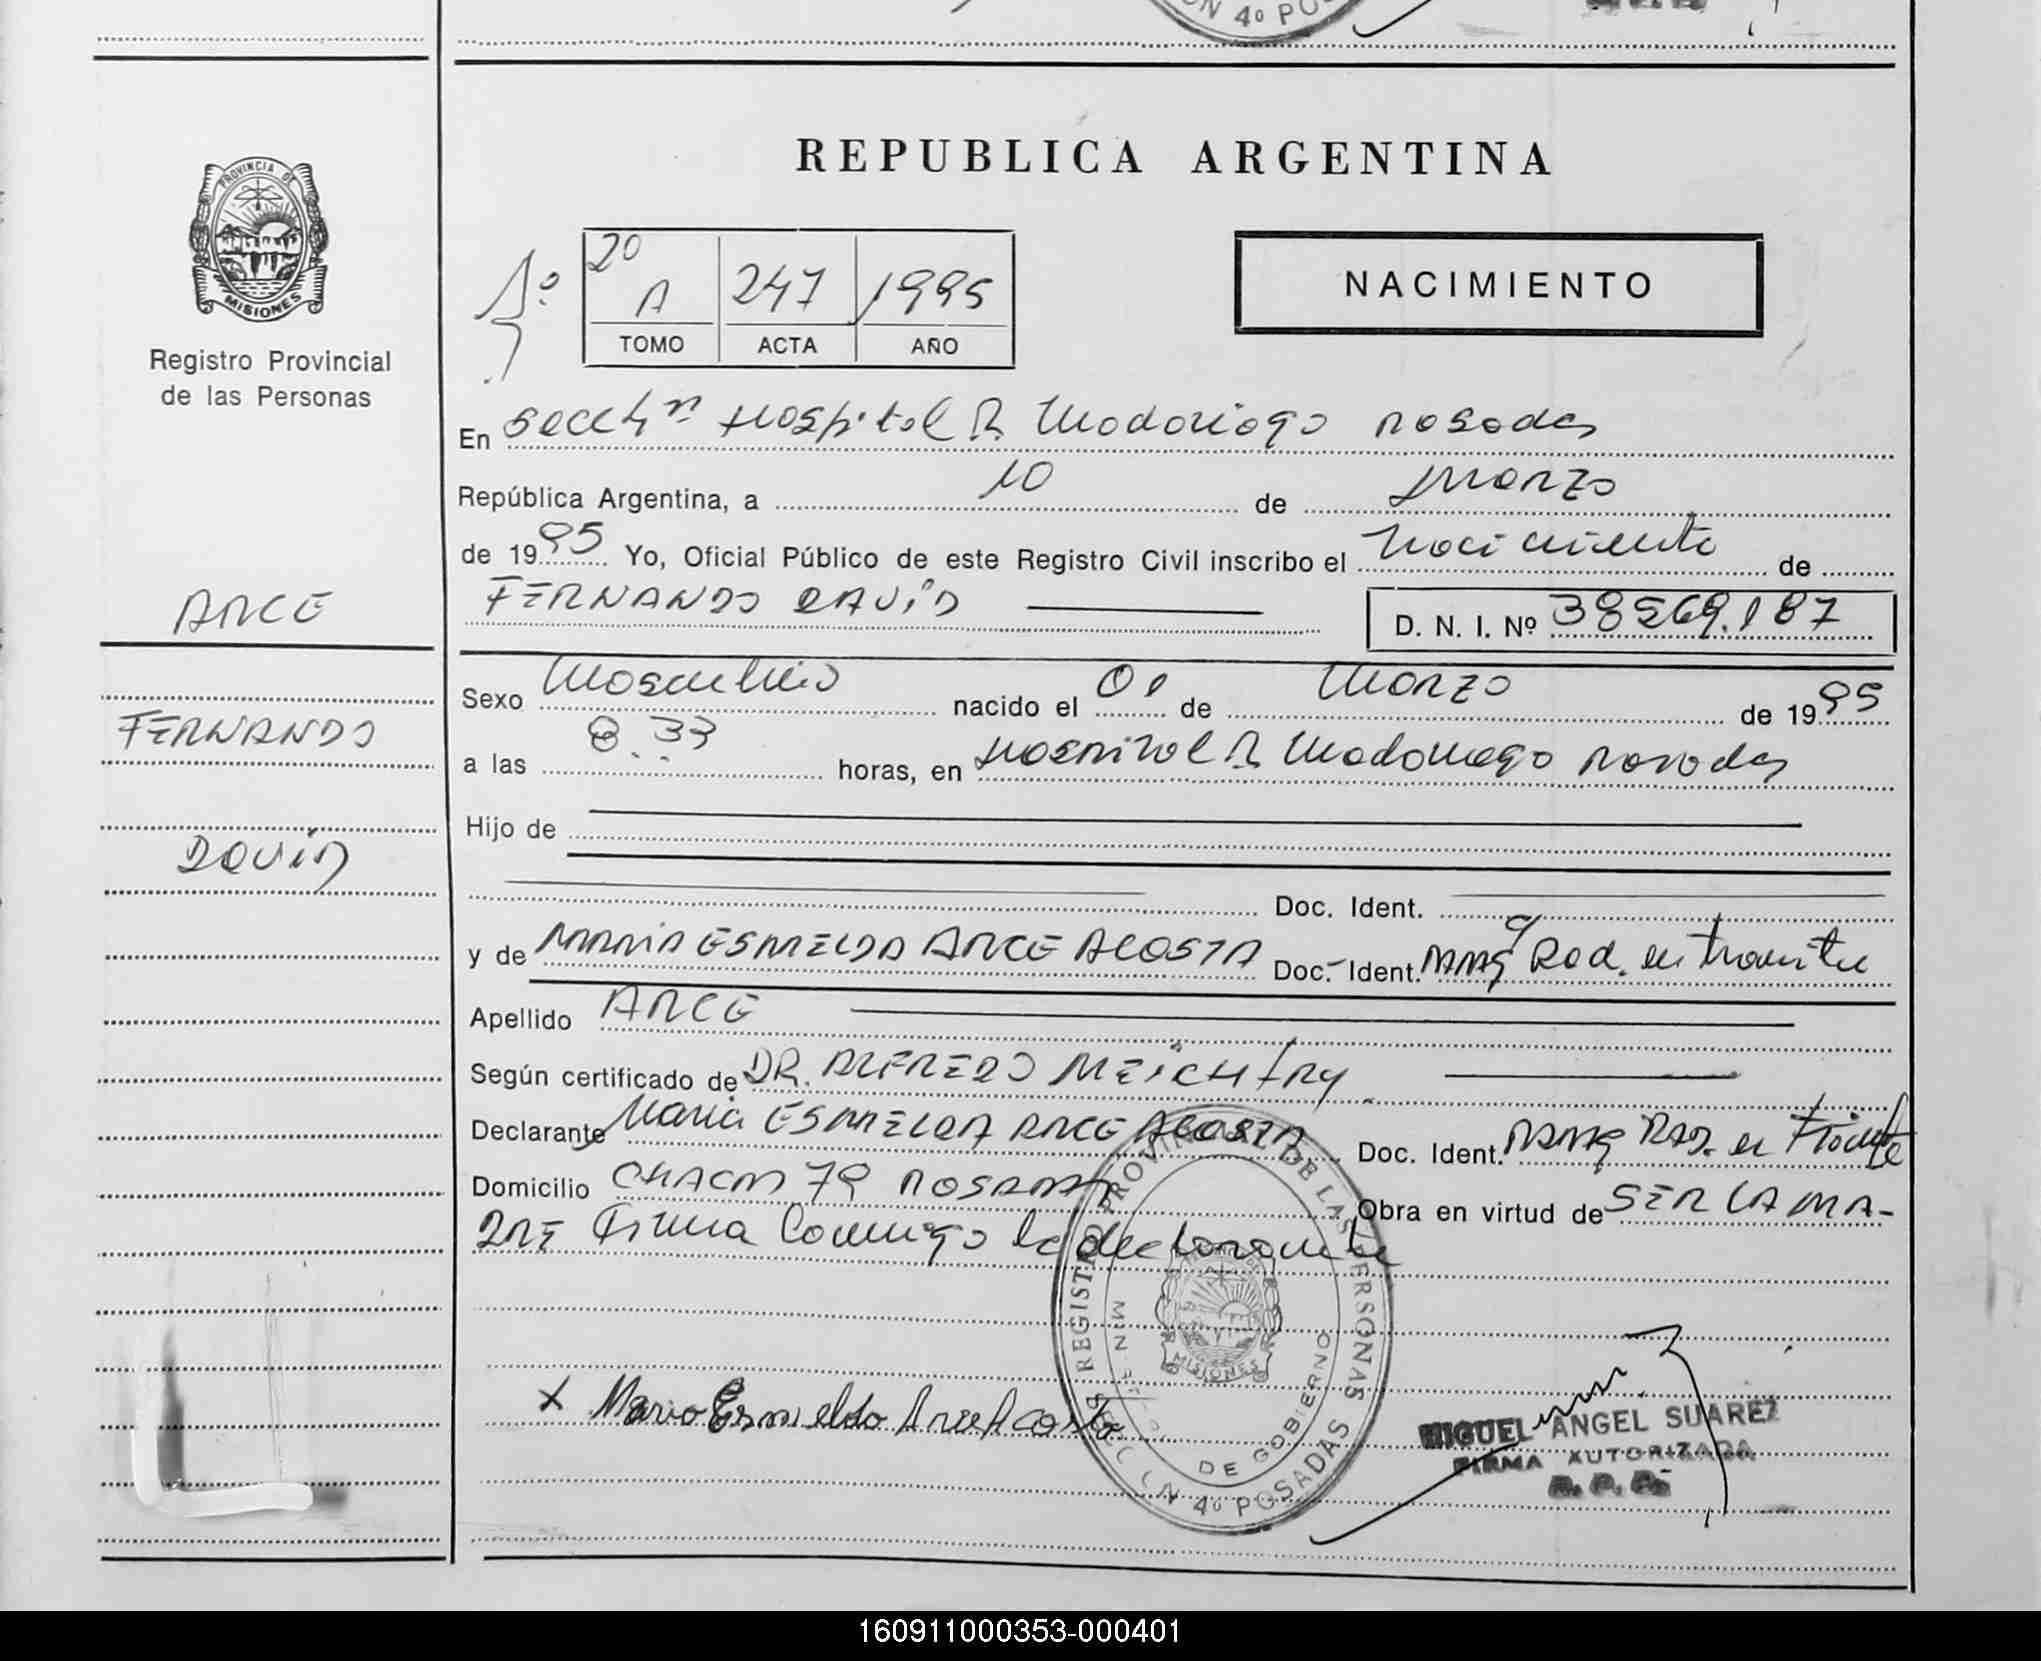 N 4º PO
REPUBLICA ARGENTINA
PROVINCIA DE
MISIONES
Registro Provincial
de las Personas
1º
20
A 247 1995
TOMO ACTA AÑO
NACIMIENTO
En Hospital R. Madariaga Posadas
República Argentina, a 10 de Marzo
de 1995 Yo, Oficial Público de este Registro Civil inscribo el Nacimiento de
FERNANDO DAVID
D. N. I. Nº 38569.187
ARCE
FERNANDO
DAVID
Sexo Masculino nacido el 01 de Marzo de 1995
a las 8.33 horas, en Hospital R. Madariaga Posadas
Hijo de
Doc. Ident.
y de MARIA ESMELDA ARCE ACOSTA Doc. Ident. Rad. en tramite
Apellido ARCE
Según certificado de DR. ALFREDO MEICHTRY
Declarante Maria ESMELDA ARCE ACOSTA Doc. Ident. Rad. en Tramite
Domicilio CHACRA 79 POSADAS Obra en virtud de SER LA MA-
DRE Firma Conmigo la declarante
REGISTRO PROVINCIAL DE LAS PERSONAS
DE GOBIERNO
MISIONES
SECC CN 4º POSADAS
x Maria Esmelda Arce Acosta
MIGUEL ANGEL SUAREZ
FIRMA AUTORIZADA
R. P. P.
160911000353-000401